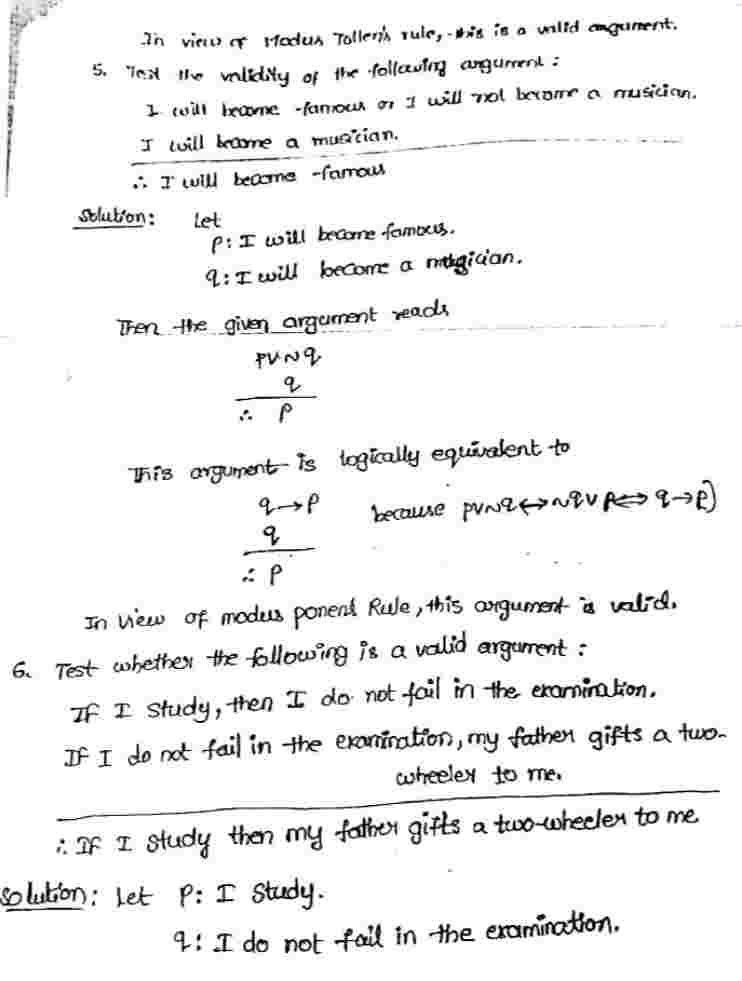 In view of Modus Tollen's rule, this is a valid argument.
5. Test the validity of the following argument :
I will become famous or I will not become a musician.
I will become a musician.
∴ I will become famous
Solution: Let
p: I will become famous.
q: I will become a musician.
Then the given argument reads
p∨~q
q
∴ p
This argument is logically equivalent to
q→p because p∨~q⟷~q∨p⟺q→p)
q
∴ p
In view of modus ponens Rule, this argument is valid.
6. Test whether the following is a valid argument :
If I study, then I do not fail in the examination.
If I do not fail in the examination, my father gifts a two-
wheeler to me.
∴ If I study then my father gifts a two-wheeler to me
Solution: Let p: I study.
q: I do not fail in the examination.